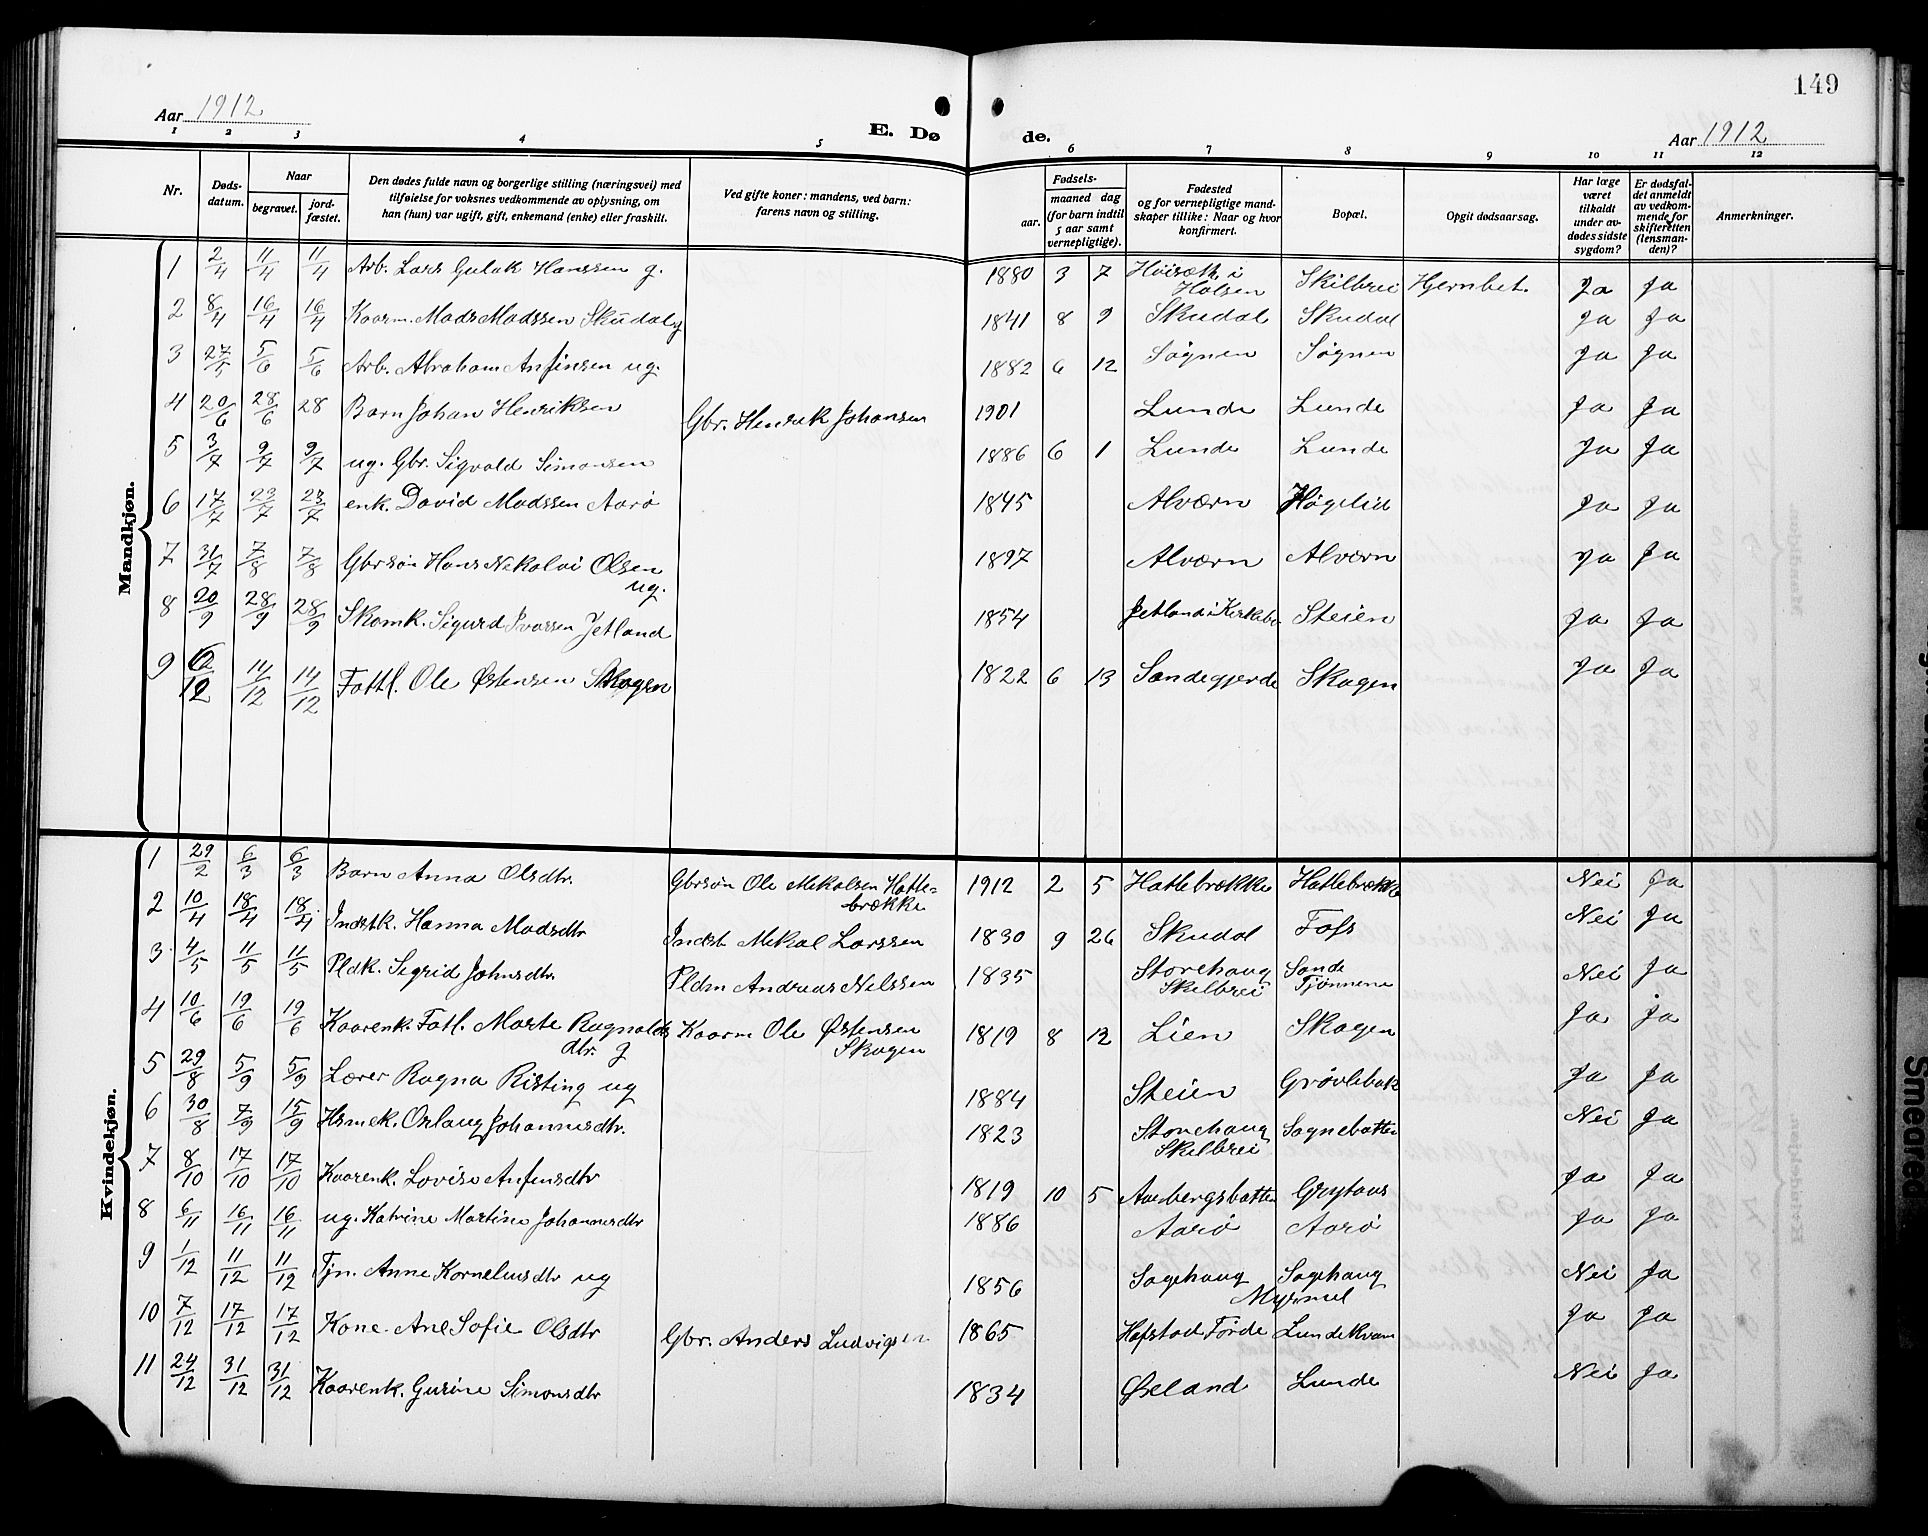 149
Aar 1912
E. Dø de.
Aar 1912
1 2 3 4 5 6 7 8 9 10 11 12
Nr.
Døds-datum.
Naar
begravet.
jord-fæstet.
Den dødes fulde navn og borgerlige stilling (næringsvei) med
tilføielse for voksnes vedkommende av oplysning, om
han (hun) var ugift, gift, enkemand (enke) eller fraskilt.
Ved gifte koner: mandens, ved barn:
farens navn og stilling.
Fødsels-
aar.
maaned dag
(for barn indtil
5 aar samt
vernepligtige).
Fødested
og for vernepligtige mand-
skaper tillike: Naar og hvor
konfirmert.
Bopæl.
Opgit dødsaarsag.
Har læge
været
tilkaldt
under av-
dødes sidste
sygdom?
Er dødsfal-
det anmeldt
av vedkom-
mende for
skifteretten
(lensman-
den)?
Anmerkninger.
Mandkjøn.
1 2/4 11/4 11/4 Arb. Lars Gulak Hanssen g. 1880 3 7 Høisæth i Holsen Skilbrei Hjernbet. Ja Ja
2 8/4 16/4 16/4 Kaarm. Mads Madssen Skudal g 1841 8 9 Skudal Skudal Ja Ja
3 27/5 5/6 5/6 Arb. Abraham Anfinsen ug. 1882 6 12 Søgnen Søgnen Ja Ja
4 20/6 28/6 28 Barn Johan Henriksen Gbr. Henrik Johansen 1901 Lunde Lunde Ja Ja
5 3/7 9/7 9/7 ug. Gbr. Sigvald Simonsen 1886 6 1 Lunde Lunde Ja Ja
6 17/7 23/7 23/7 enk. David Madssen Aarø 1845 Alværn Høgelid Ja Ja
7 31/7 7/8 7/8 Gbrsøn Hans Nikolai Olsen ug. 1897 Alværn Alværn Ja Ja
8 20/9 28/9 28/9 Skomk. Sigurd Ivarsen Jetland 1854 Jetland i Kirkebø Steien Ja Ja
9 6/12 14/12 14/12 Fattl. Ole Østensen Skogen 1822 6 13 Sandegjerde Skogen Ja Ja
Kvindekjøn.
1 29/2 6/3 6/3 Barn Anna Olsdtr. Gbrsøn Ole Mikalsen Hatle-
brække 1912 2 5 Hatlebrække Hatlebrække Nei Ja
2 10/4 18/4 18/4 Indstk. Hanna Madsdtr Indst. Mikal Larssen 1830 9 26 Skudal Fofs Nei Ja
3 4/5 11/5 11/5 Pldk. Sigrid Johnsdtr. Pldm Andreas Nilssen 1835 Storehaug Skilbrei Sande Tjønnene Nei Ja
4 10/6 19/6 19/6 Kaarenk. Fatl. Marte Ragnalds
dtr. g Kaarm Ole Østensen Skogen 1819 8 12 Lien Skogen Ja Ja
5 29/8 5/9 5/9 Lærer Ragna Risting ug 1884 Steien Grøvlebak Ja Ja
6 30/8 7/9 15/9 Hsmek. Orlaug Johannesdtr. 1823 Storehaug Skilbrei Sognebotten Nei Ja
7 8/10 17/10 17/10 Kaarenk. Lovise Anfinsdtr 1819 10 5 Aarbergsbotten Grytaas Ja Ja
8 6/11 16/11 16/11 ug. Katrine Martine Johannesdtr 1886 Aarø Aarø Ja Ja
9 1/12 11/12 11/12 Tjn. Anne Korneliusdtr ug 1856 Sagehaug Sagehaug Myrmel Nei Ja
10 7/12 17/12 17/12 Kone. Ane Sofie Olsdtr Gbr. Anders Ludvigsen 1865 Hafstad Førde Lunde Kvam Ja Ja
11 24/12 31/12 31/12 Kaarenk. Gurine Simonsdtr 1834 Øseland Lunde Nei Ja
Smeared